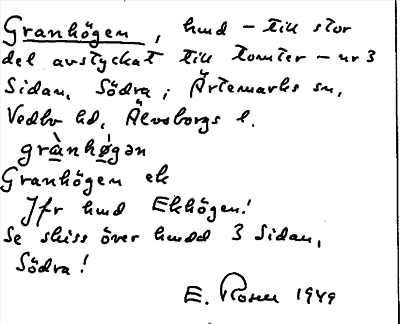 Granhögen, hmd – till stor
del avstyckat till tomter – ur 3
Sidan, Södra, Ärtemarks sn,
Vedbo hd, Älvsborgs l.
grànhø̀gən
Granhögen ek
Jfr hmd Ekhögen!
Se skiss över hmdd 3 Sidan,
Södra!
E. Rosen 1949